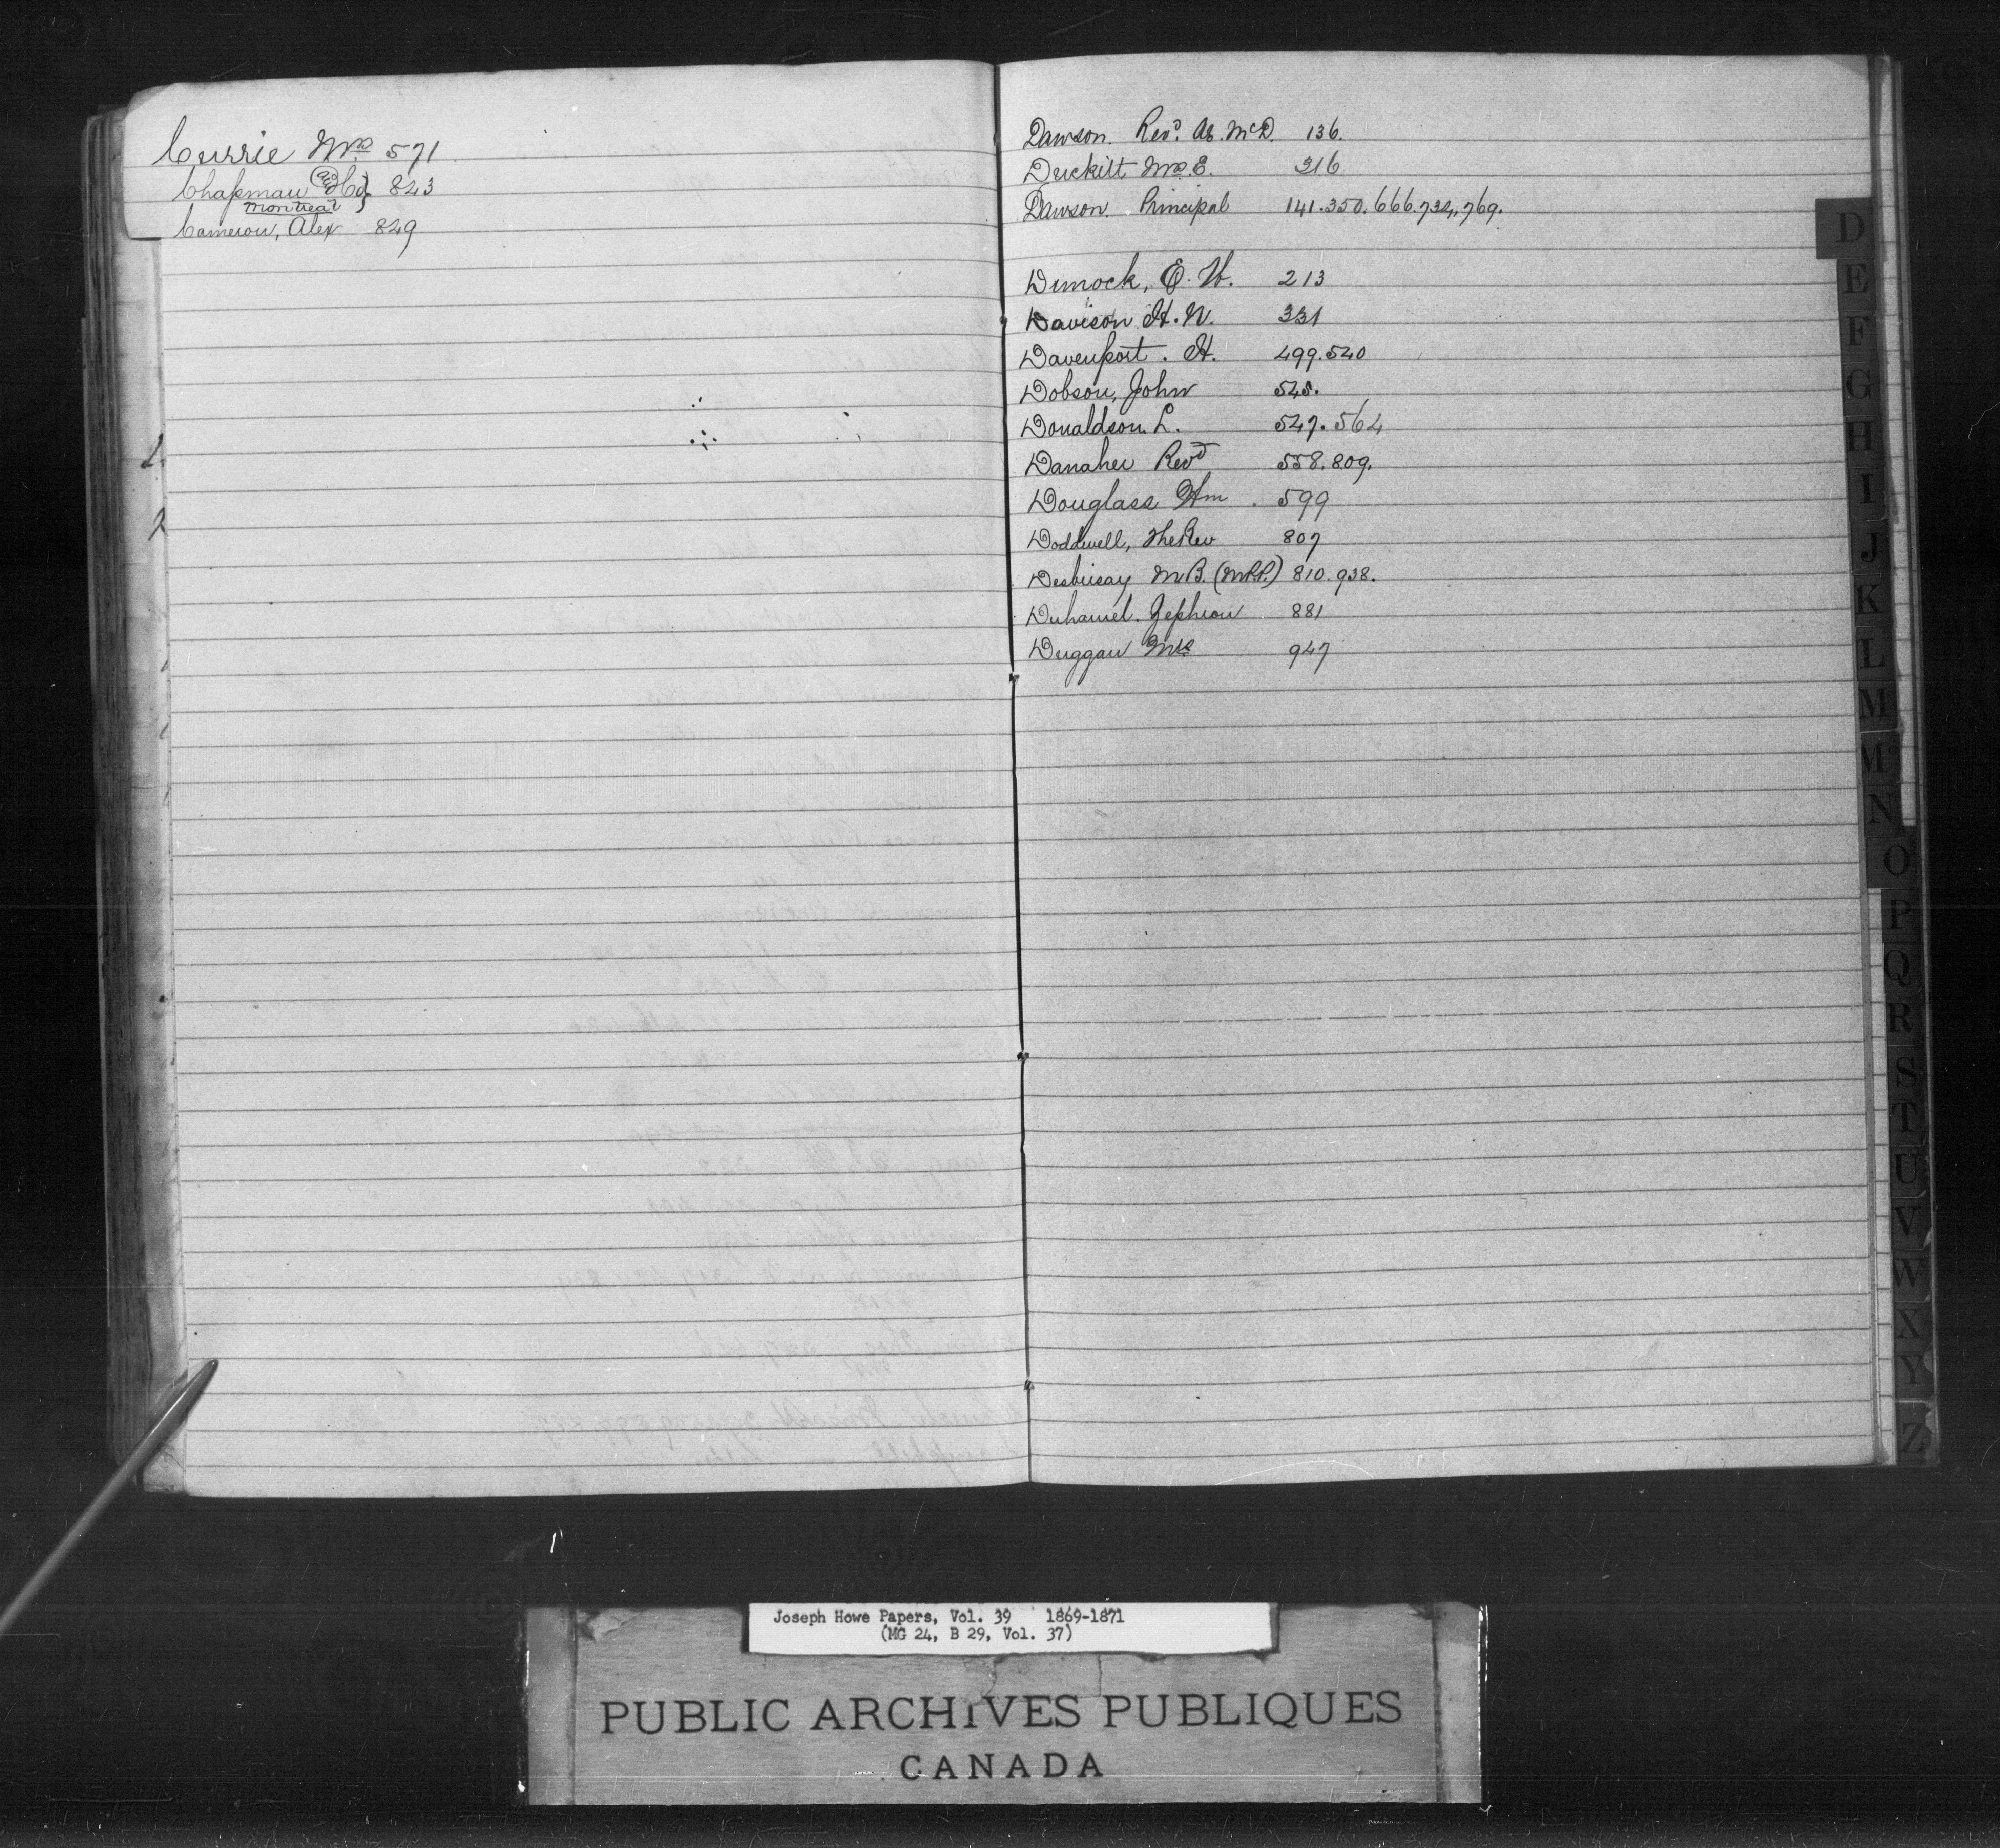 Currie Mrs 571
Chapman (and Co) 823
Montreal
Cameron, Alex 849
Dawson. Revd. Æ. McD. 136.
Duckitt Mrs. E. 316
Dawson. Principal 141.350.666.734,769.
Dimock, E. W. 213
Davison H. N. 331
Davenport. H. 499.540
Dobson, John 545.
Donaldson. L. 547.564
Danaher Revd 558.809.
Douglass Wm. 599
Doddwell, The Rev 807
Desbrisay M.B. (M.P.P.) 810.938.
Duhamel. Zephron 881
Duggan Mrs 947
D
E
F
G
H
I
J
K
L
M
Mc
N
O
P
Q
R
S
T
U
V
W
X
Y
Z
Joseph Howe Papers, Vol. 39 1869-1871
(MG 24, B 29, Vol. 37)
PUBLIC ARCHIVES PUBLIQUES
CANADA